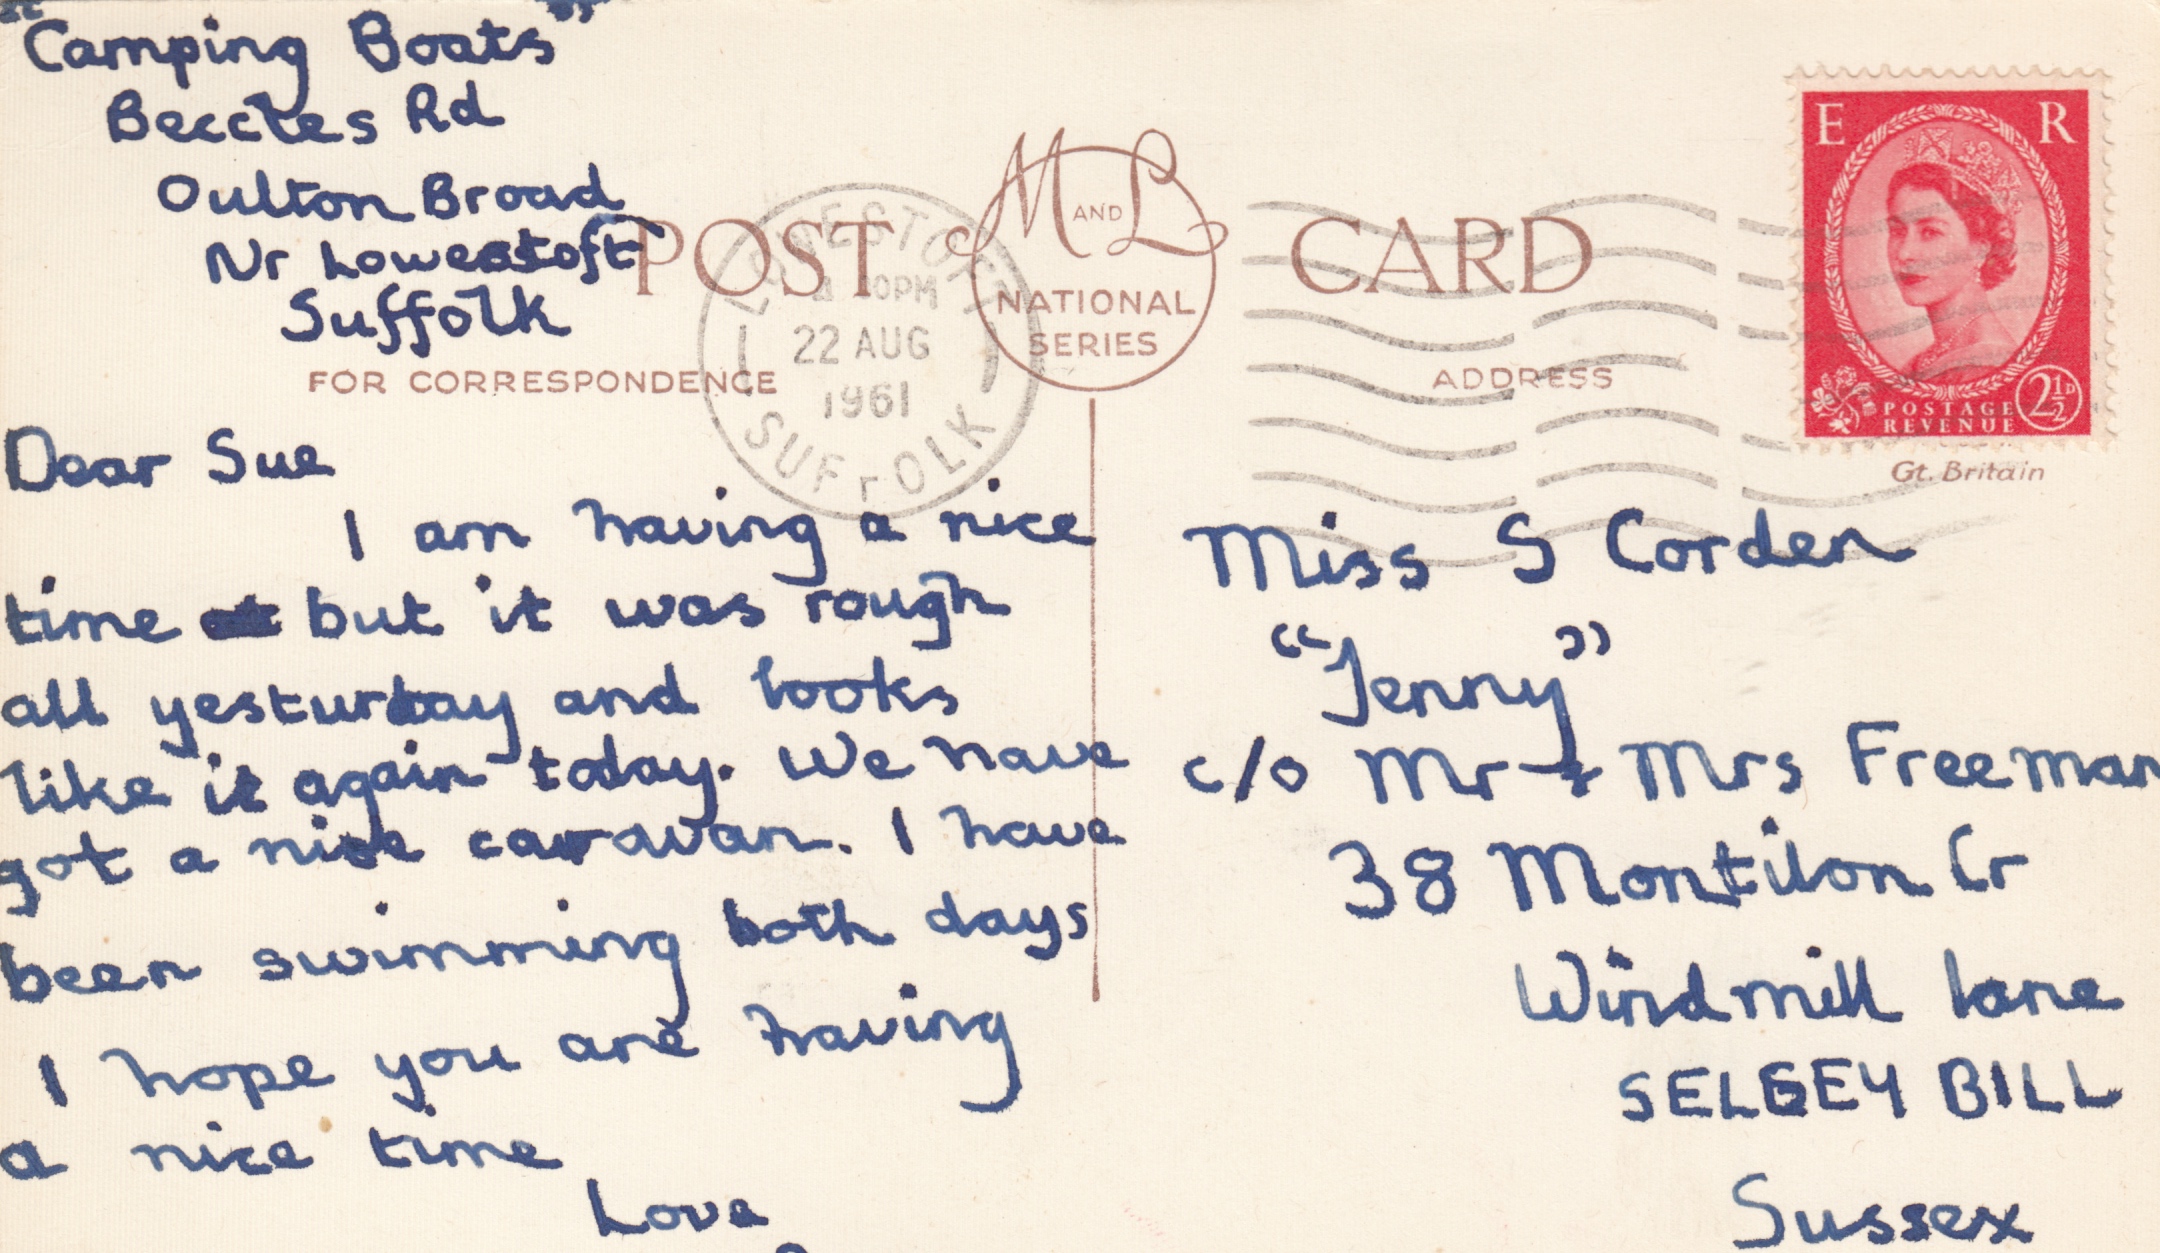 "Camping Boats"
Beccles Rd
Oulton Broad
Nr Lowestoft
Suffolk
POST CARD
M AND L
NATIONAL
SERIES
LOWESTOFT
0PM
22 AUG
1961
SUFFOLK
FOR CORRESPONDENCE
ADDRESS
E R
POSTAGE
REVENUE
2½D
Gt. Britain
Dear Sue
I am having a nice
time but it was rough
all yesturday and looks
like it again today. We have
got a nice caravan. I have
been swimming both days
I hope you are having
a nice time
Love
Miss S Corden
"Jenny"
c/o Mr & Mrs Freeman
38 Montilon Cr
Windmill lane
SELSEY BILL
Sussex